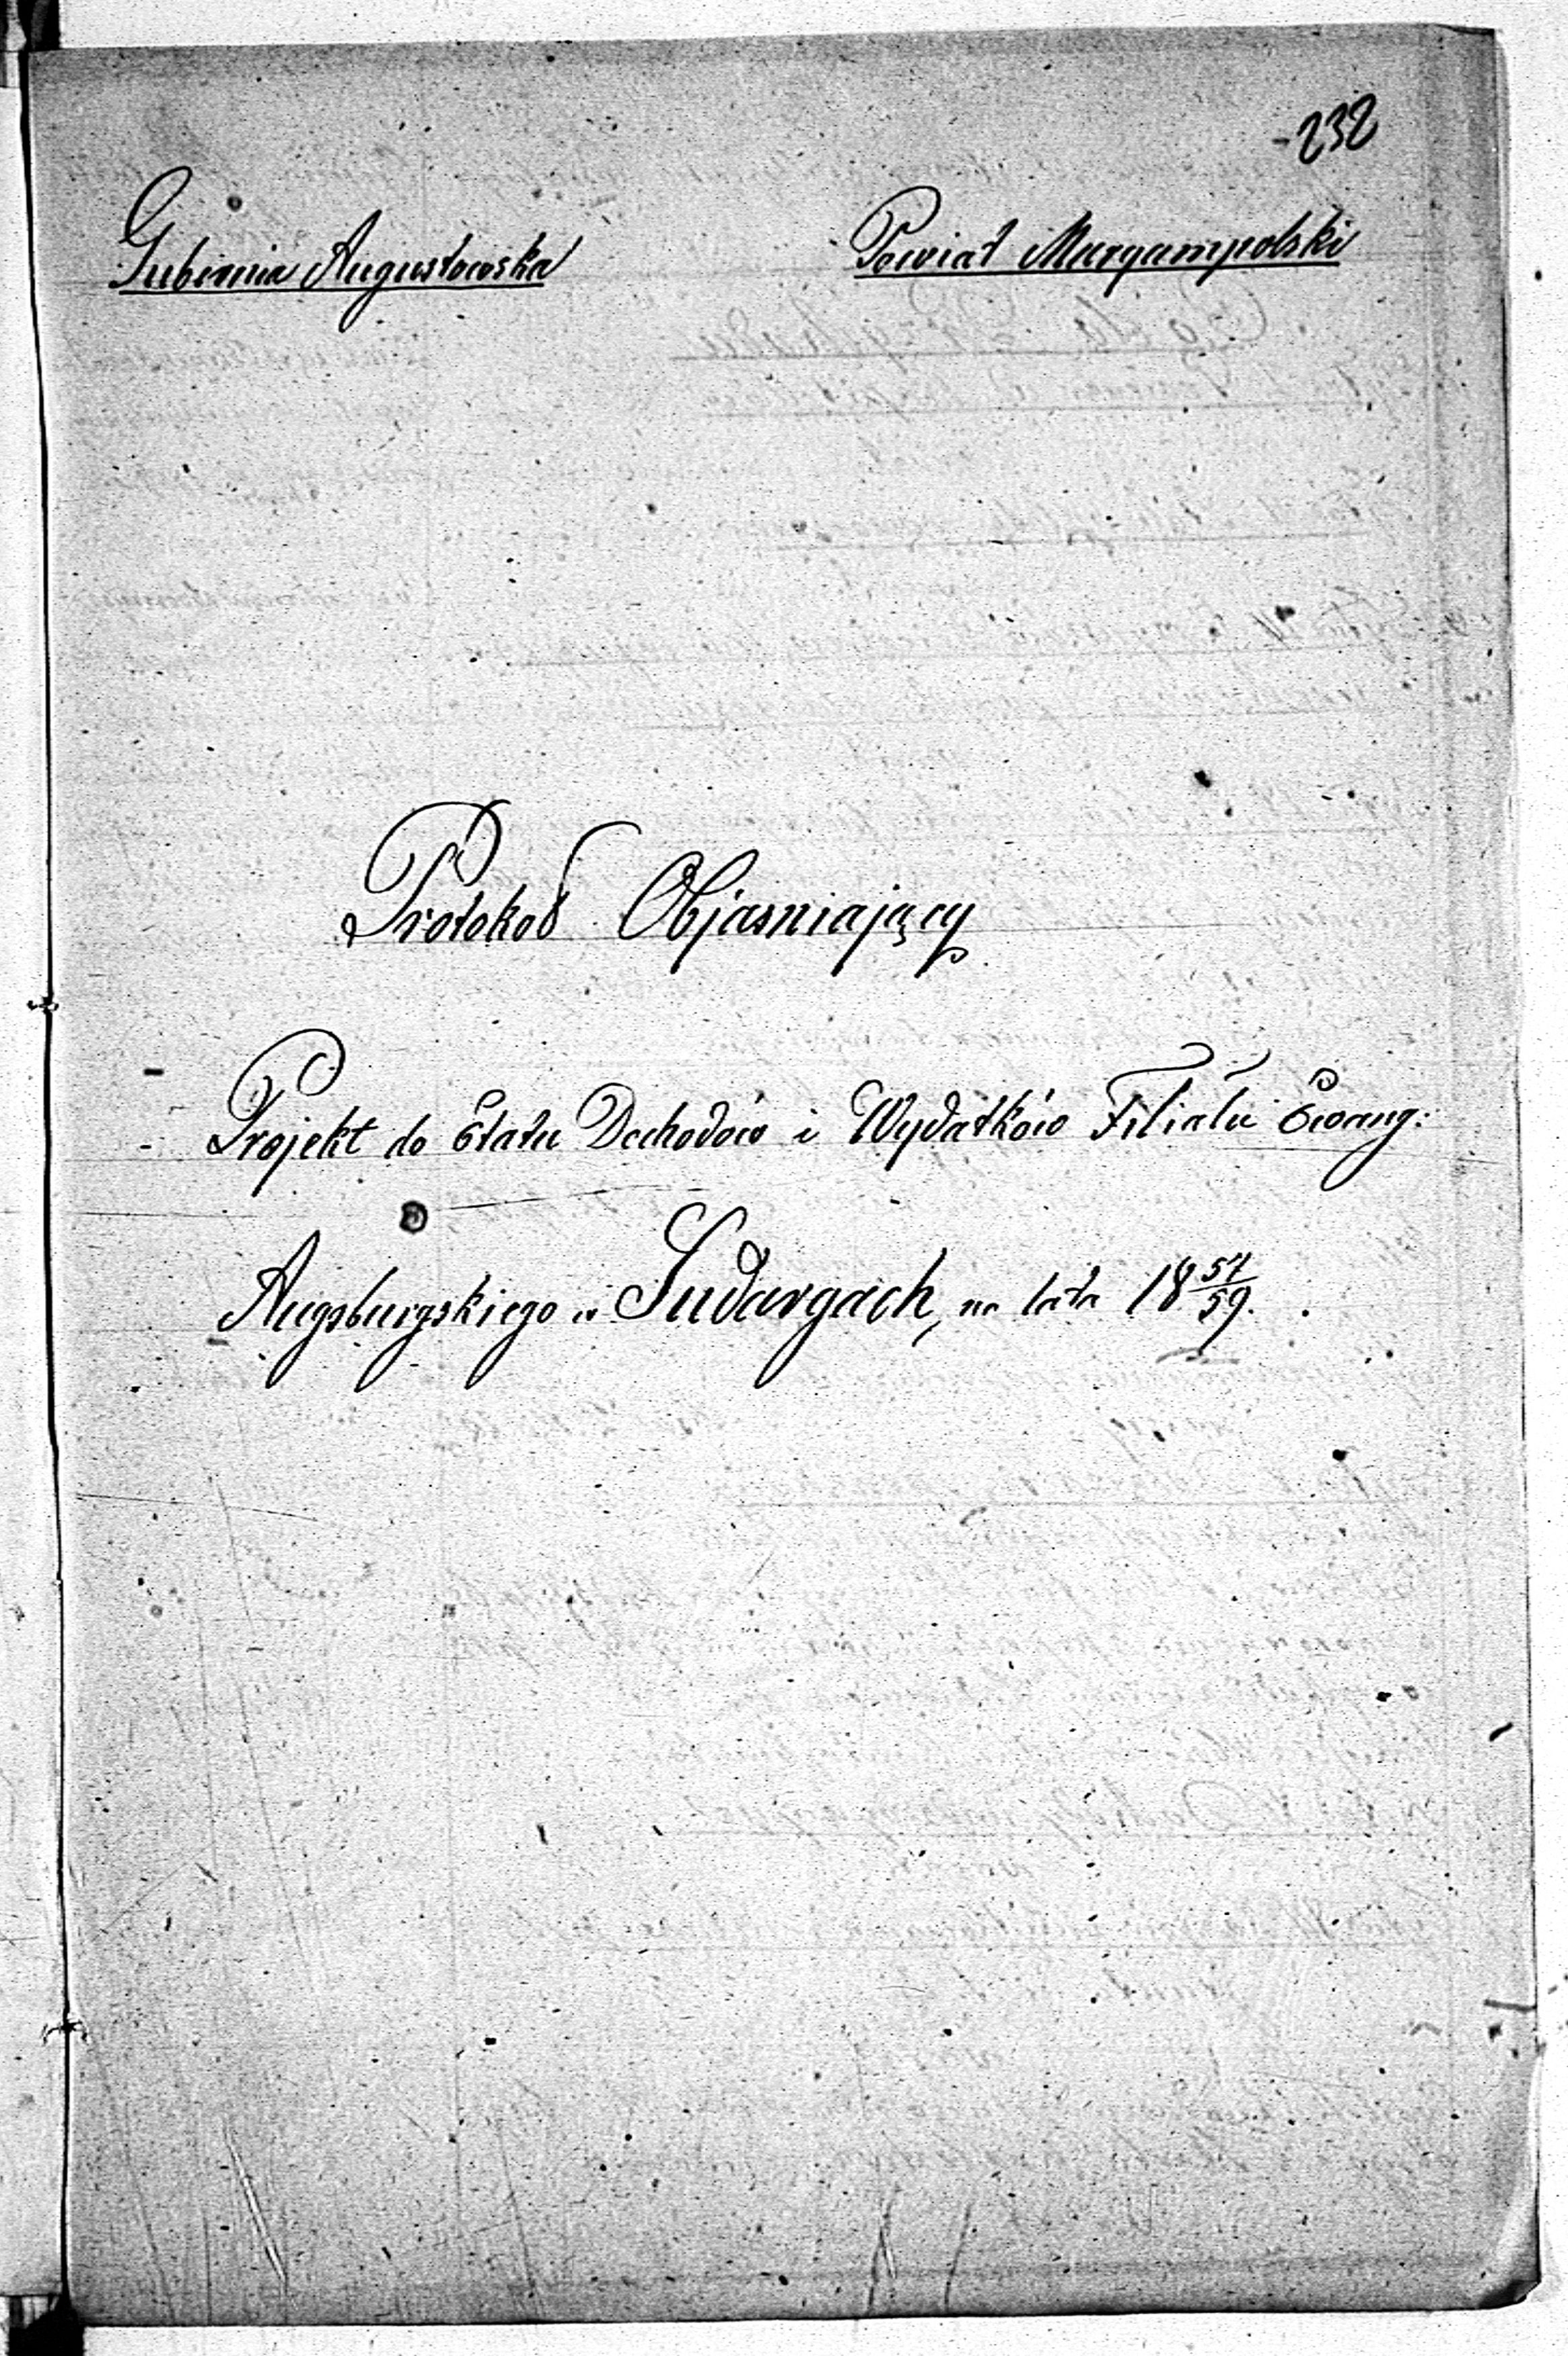 232
Gubernia Augustowska Powiat Maryampolski
Protokoł Objasniający
Projekt do Etatu Dochodów i Wydatków Filiału Ewang:
Augsburgskiego w Sudargach, na lata 18 57/59.